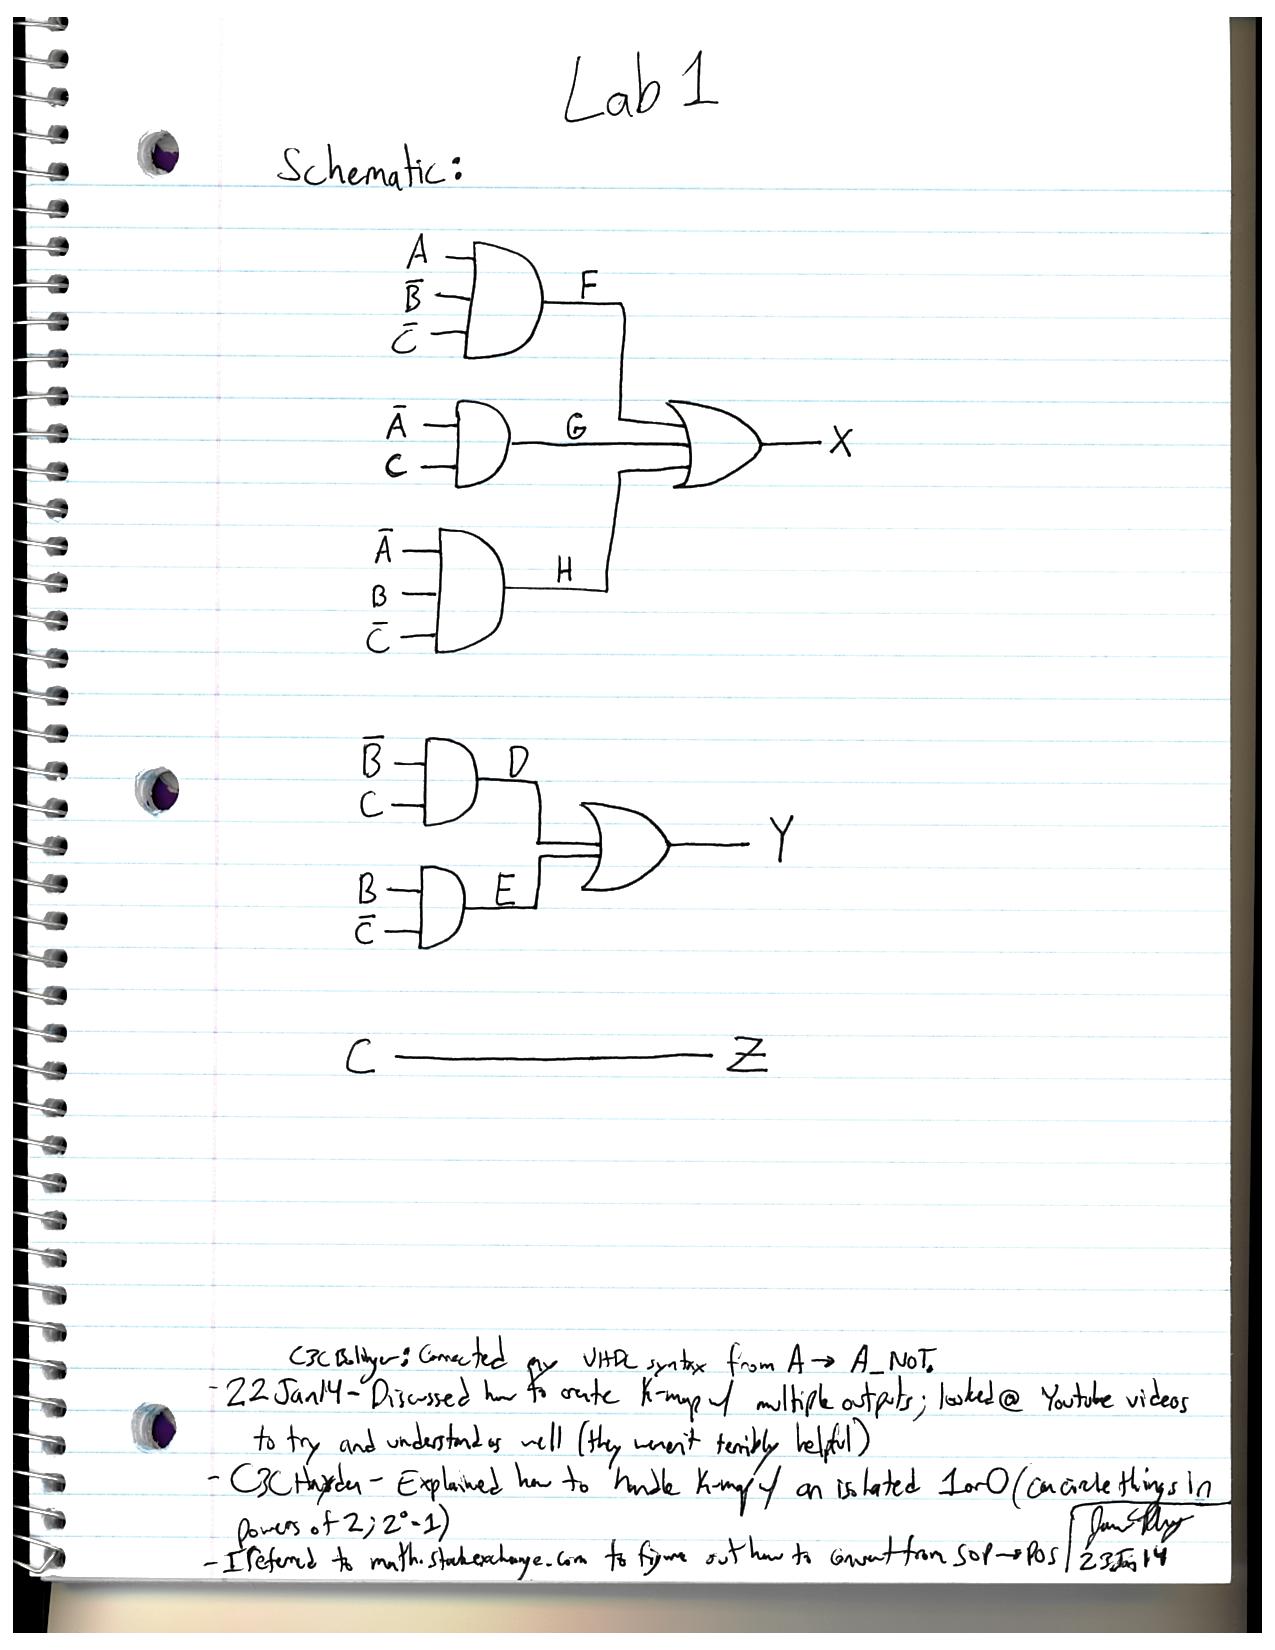 Lab 1
Schematic:
A
B̅
C̅
F
A̅
C
G
X
A̅
B
C̅
H
B̅
C
D
Y
B
C̅
E
C Z
C3C Bolinger: Corrected my VHDL syntax from A → A_NOT.
-22 Jan 14 - Discussed how to create K-map w/ multiple outputs; looked @ Youtube videos
to try and understand as well (they weren't terribly helpful)
- C3C Hayden - Explained how to handle K-map w/ an isolated 1 or 0 (can circle things in
powers of 2; 2⁰=1)
- I referred to math.stackexchange.com to figure out how to convert from SOP → POS
23 Jan 14